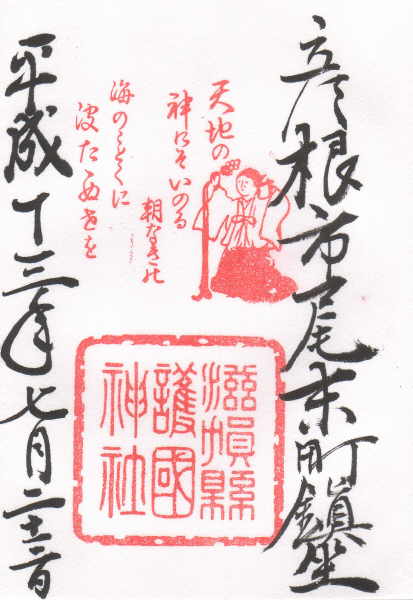 彦根市尾末町鎮坐
天地の
神にそいのる
朝なきの
海のことくに
波たゝぬ世を
滋賀縣
護國
神社
平成十三年七月二十二日